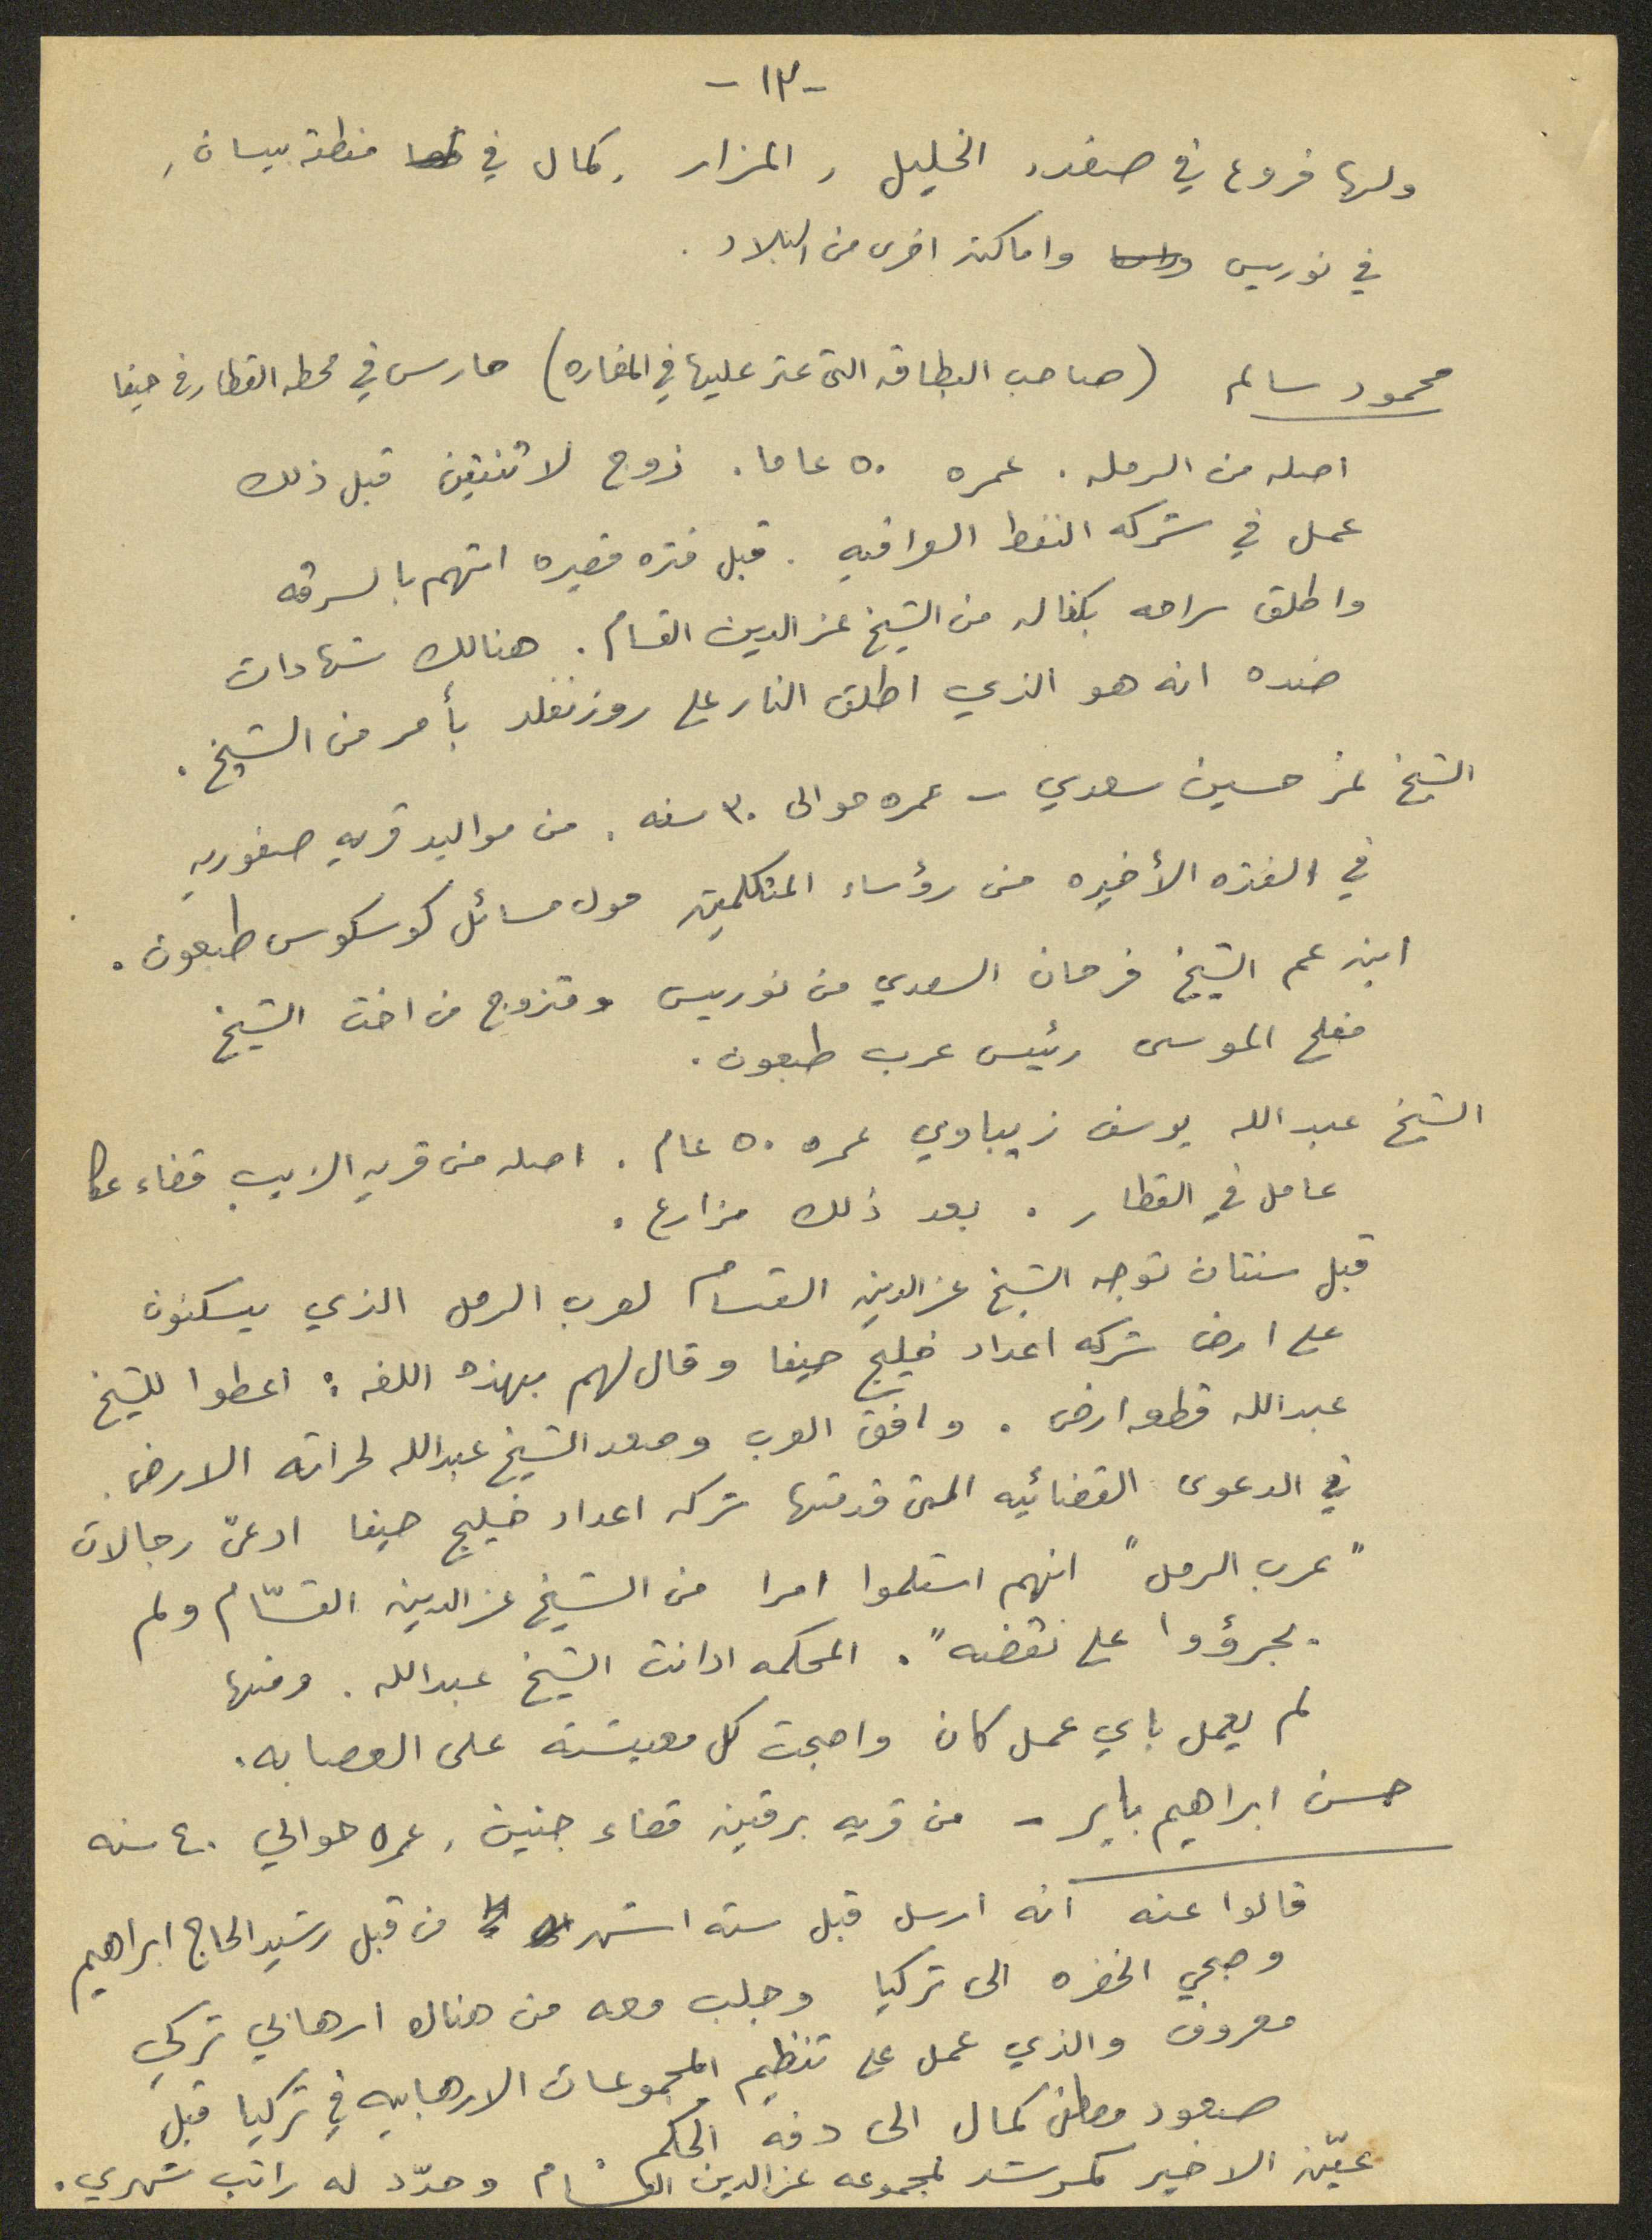 -١٣-
ولها فروع في صفد، الخليل، المزار، كمال في منطقة بيسان،
في نوريس واماكن اخرى من البلاد.
محمود سالم (صاحب البطاقه التي عثر عليها في المغاره) حارس في محطه القطار في حيفا
اصله من الرمله. عمره ٥٠ عاما. زوج لاثنتين قبل ذلك
عمل في شركه النفط العراقيه. قبل فتره قصيره اتهم بالسرقه
واطلق سراحه بكفاله من الشيخ عز الدين القسام. هنالك شهادات
ضده انه هو الذي اطلق النار على روزنفلد بأمر من الشيخ.
الشيخ نمر حسين سعدي - عمره حوالى ٣٠ سنه. من مواليد قريه صفوريه
في الفتره الأخيره من رؤساء المتكلمين حول مسائل كوسكوس طبعون.
ابن عم الشيخ فرحان السعدي من نوريس ومتزوج من اخت الشيخ
مفلح الموسى رئيس عرب طبعون.
الشيخ عبد الله يوسف زيباوي عمره ٥٠ عام. اصله من قريه الزيب قضاء عكا
عامل في القطار. بعد ذلك مزارع.
قبل سنتان توجه الشيخ عز الدين القسام لعرب الرمل الذي يسكنون
على ارض شركه اعداد خليج حيفا وقال لهم بهذه اللغه: اعطوا للشيخ
عبد الله قطعه ارض. وافق العرب وصعد الشيخ عبد الله لحراثه الارض.
في الدعوى القضائيه التي قدمتها شركه اعداد خليج حيفا ادعى رجالات
"عرب الرمل" انهم استلموا امرا من الشيخ عز الدين القسّام ولم
يجرؤوا على نقضه". المحكمه ادانت الشيخ عبد الله. ومنها
لم يعمل باي عمل كان واصبحت كل معيشته على العصابه.
حسن ابراهيم باير - من قريه برقين قضاء جنين، عمره حوالي ٤٠ سنه
قالوا عنه انه ارسل قبل سته اشهر من قبل رشيد الحاج ابراهيم
وصبحي الخضره الى تركيا وجلب معه من هناك ارهابي تركي
معروف والذي عمل على تنظيم المجموعات الارهابيه في تركيا قبل
صعود مصطفى كمال الى دفه الحكم
عيّن الاخير كمرشد لمجموعه عز الدين القسام وحدّد له راتب شهري.